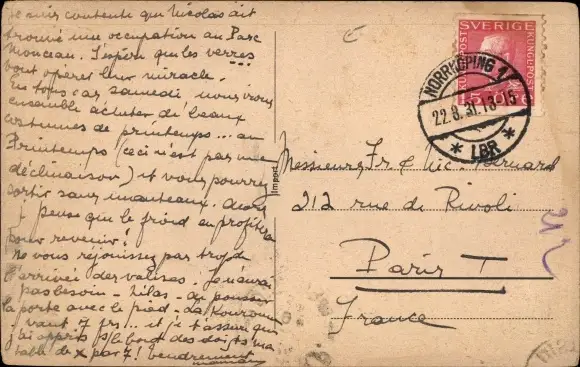 Je suis contente que Nicolas ait
trouvé une occupation au Parc
Monceau. J'espère que les verres
vont opérer leur miracle.
En tous cas, samedi nous irons
ensemble acheter de beaux
costumes de printemps... au
Printemps (ceci n'est pas une
déclinaison) et vous pourrez
sortir sans manteaux.
je pense que le froid en profitera
pour revenir!
Ne vous réjouissez pas trop de
l'arrivée des valises. Je n'aurai
pas besoin - hélas - de pousser
la porte avec le pied - La Couronne
vaut 7 frs... et je t'assure que
j'ai appris s/le bord des doigts ma
table de x par 7! tendrement
maman
SVERIGE
NORRKÖPING 1
22.8.31.13-15
* LBR *
Import.
Messieurs Fr. & Nic.
212 rue de Rivoli
Paris I
France